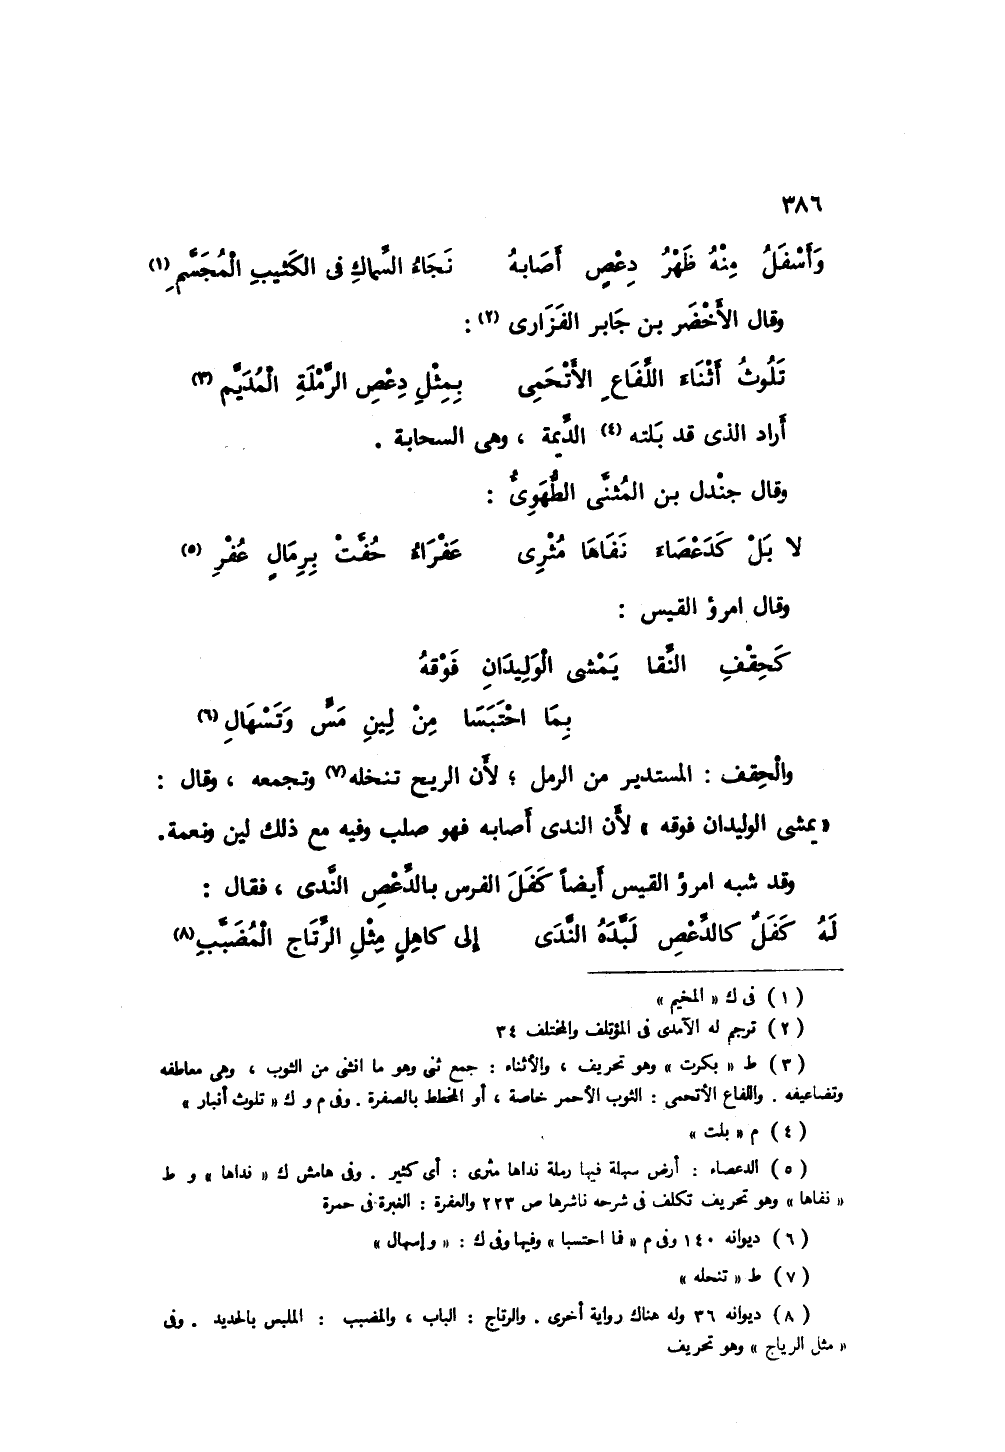 ٣٨٦
وَأَسْفَلُ مِنْهُ ظَهْرُ دِعْصٍ أَصَابهُ نَجَاءُ السِّماكِ فى الكَثيبِ الْمُجَسَّمِ (١)
وقال الأَخْضَر بن جَابر الفَزَارى (٢) :
تَلُوثُ أَثْنَاءَ اللِّفَاعِ الأَتْحَمِى بِمِثْلِ دِعْصِ الرَّمْلَةِ الْمُدَيَّمِ (٣)
أَراد الذى قد بَلته (٤) الدِّيمة ، وهى السحابة .
وقال جنْدل بن المُثنَّى الطُّهَوِىُّ :
لا بَلْ كَدَعْصَاءَ نَفَاهَا مُثْرِى عَفْرَاءُ حُفَّتْ بِرِمَالٍ عُفْرِ (٥)
وقال امرؤ القيس :
كَحِقْفِ النَّقا يَمْشى الْوَلِيدَانِ فَوْقهُ
بِمَا احْتَبَسَا مِنْ لِينِ مَسٍّ وَتَسْهَالِ (٦)
والْحِقف : المستدير من الرمل ؛ لأَن الريح تنخله (٧) وتجمعه ، وقال :
« يمشى الوليدان فوقه » لأَن الندى أَصابه فهو صلب وفيه مع ذلك لين ونعمة.
وقد شبه امرؤ القيس أَيضاً كَفَلَ الفرس بالدِّعْصِ النَّدى ، فقال :
لَهُ كَفَلٌ كالدِّعْصِ لَبَّدَهُ النَّدَى إلى كاهِلٍ مِثْلِ الرِّتَاجِ الْمُضَبَّبِ (٨)
( ١ ) فى ك « المخيم »
( ٢ ) ترجم له الآمدى فى المؤتلف والمختلف ٣٤
( ٣ ) ط « بكرت » وهو تحريف ، والأثناء : جمع ثنى وهو ما انثنى من الثوب ، وهى معاطفه
وتضاعيفه . واللفاع الأتحمى : الثوب الأحمر خاصة ، أو المخطط بالصفرة . وفى م و ك « تلوث أنبار »
( ٤ ) م « بلت »
( ٥ ) الدعصاء : أرض سهلة فيها رملة نداها مثرى : أى كثير . وفى هامش ك « نداها » و ط
« نفاها » وهو تحريف تكلف فى شرحه ناشرها ص ٢٢٣ والعفرة : الغبرة فى حمرة
( ٦ ) ديوانه ١٤٠ وفى م « فما احتسبا » وفيها وفى ك : « وإسهال »
( ٧ ) ط « تنحله »
( ٨ ) ديوانه ٣٦ وله هناك رواية أخرى . والرتاج : الباب ، والمضبب : الملبس بالحديد . وفى
« مثل الرياج » وهو تحريف